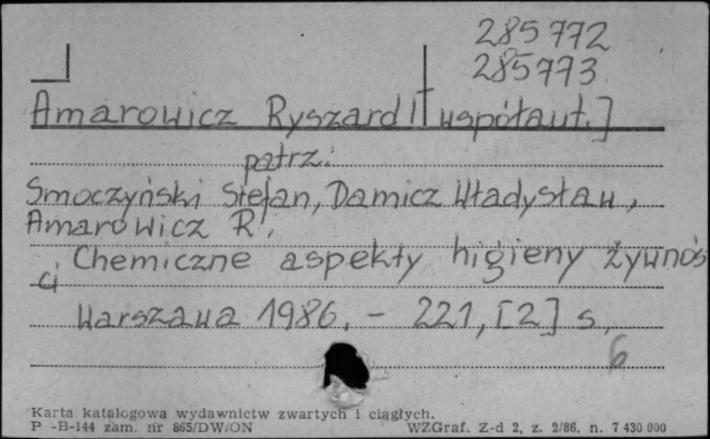 285772
285773
Amarowicz Ryszard [współaut.]
patrz:
Smoczyński Stefan, Damicz Władysław,
Amarowicz R.
Chemiczne aspekty higieny żywnoś
ci
Warszawa 1986. - 221, [2] s.
6
Karta katalogowa wydawnictw zwartych i ciągłych.
P -B-144 zam. nr 865/DW/ON WZGraf. Z-d 2, z. 2/86. n. 7 430 000